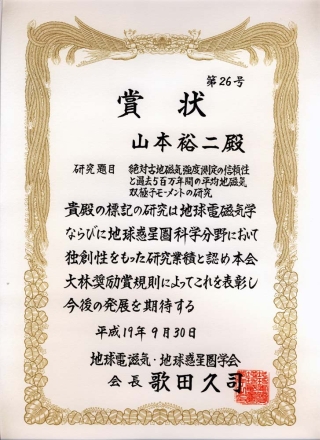 第26号
賞状
山本裕二殿
研究題目 絶対古地磁気強度測定の信頼性
と過去5百万年間の平均地磁気
双極子モーメントの研究
貴殿の標記の研究は地球電磁気学
ならびに地球惑星圏科学分野において
独創性をもった研究業績と認め本会
大林奨励賞規則によってこれを表彰し
今後の発展を期待する
平成19年9月30日
地球電磁気・地球惑星圏学会
会長 歌田久司